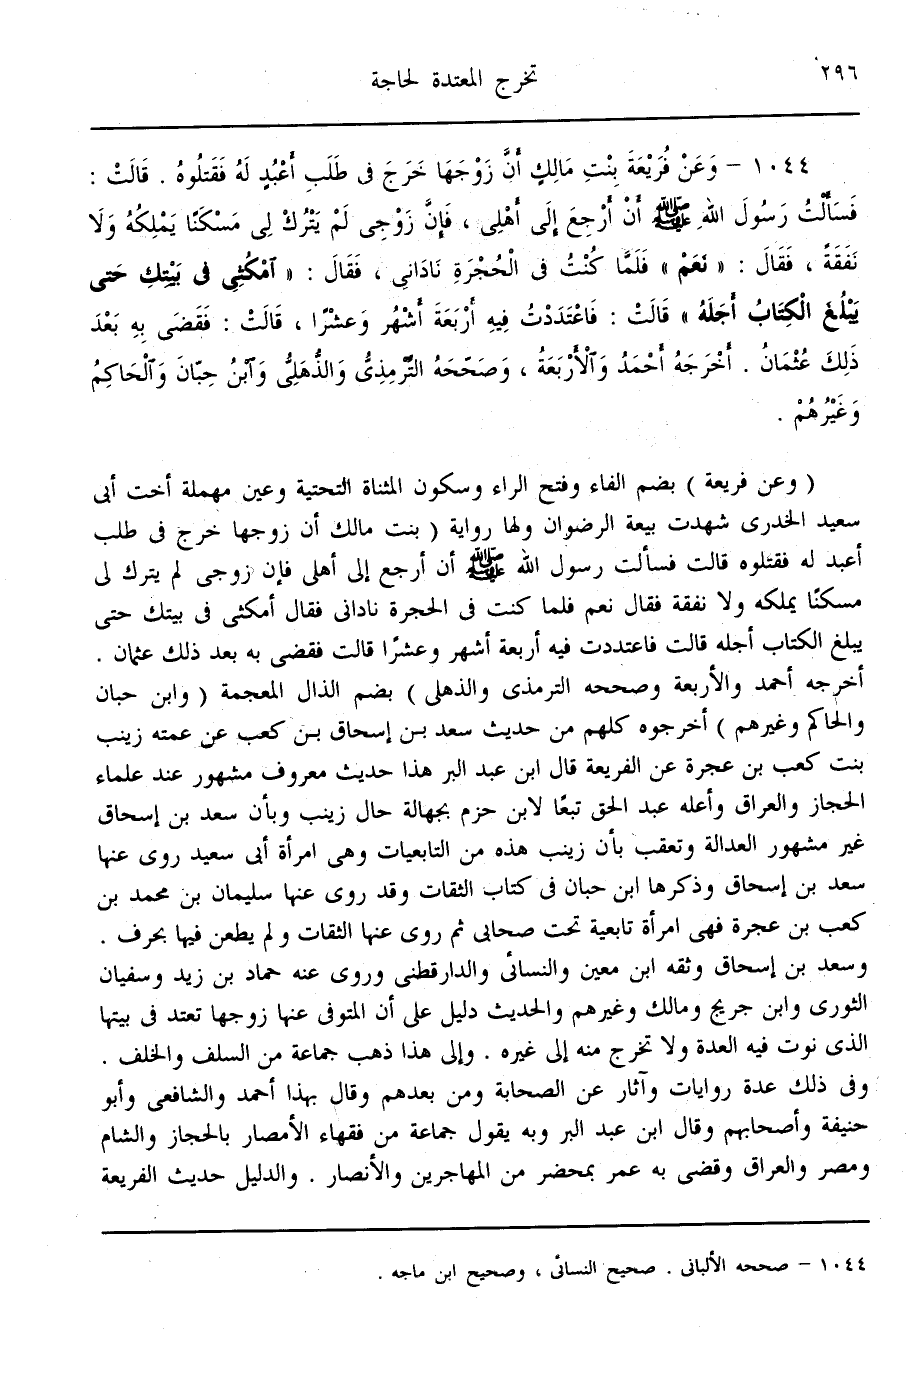 ٢٩٦
تخرج المعتدة لحاجة
١٠٤٤ – وَعَنْ فُرَيْعَةَ بِنْتِ مَالِكٍ أَنَّ زَوْجَهَا خَرَجَ فى طَلَبِ أَعْبُدٍ لَهُ فَقَتَلُوهُ . قَالَتْ :
فَسَأَلْتُ رَسُولَ اللهِ ﷺ أَنْ أَرْجِعَ إِلَى أَهْلِى ، فَإِنَّ زَوْجِى لَمْ يَتْرُكْ لِى مَسْكَنًا يَمْلِكُهُ وَلَا
نَفَقَةً ، فَقَالَ : « نَعَمْ » فَلَمَّا كُنْتُ فى الْحُجْرَةِ نَادَانِى ، فَقَالَ : « آمْكُثِى فى بَيْتِكِ حَتى
يَبْلُغَ الْكِتَابُ أَجَلَهُ » قَالَتْ : فَاعْتَدَدْتُ فِيهِ أَرْبَعَةَ أَشْهُرٍ وَعَشْرًا ، قَالَتْ : فَقَضَى بِهِ بَعْدَ
ذَلِكَ عُثْمَانُ . أَخْرَجَهُ أَحْمَدُ وَآلْأَرْبَعَةُ ، وَصَحّحَهُ التِّرمِذِىُّ وَالذُّهَلِىُّ وَآبْنُ حِبّانَ وَآلْحَاكِمُ
وَغَيْرُهُمْ .
( وعن فريعة ) بضم الفاء وفتح الراء وسكون المثناة التحتية وعين مهملة أخت أبى
سعيد الخدرى شهدت بيعة الرضوان ولها رواية ( بنت مالك أن زوجها خرج فى طلب
أعبد له فقتلوه قالت فسألت رسول الله ﷺ أن أرجع إلى أهلى فإن زوجى لم يترك لى
مسكنًا يملكه ولا نفقة فقال نعم فلما كنت فى الحجرة نادانى فقال أمكثى فى بيتك حتى
يبلغ الكتاب أجله قالت فاعتددت فيه أربعة أشهر وعشرًا قالت فقضى به بعد ذلك عثمان .
أخرجه أحمد والأربعة وصححه الترمذى والذهلى ) بضم الذال المعجمة ( وابن حبان
والحاكم وغيرهم ) أخرجوه كلهم من حديث سعد بن إسحاق بن كعب عن عمته زينب
بنت كعب بن عجرة عن الفريعة قال ابن عبد البر هذا حديث معروف مشهور عند علماء
الحجاز والعراق وأعله عبد الحق تبعًا لابن حزم بجهالة حال زينب وبأن سعد بن إسحاق
غير مشهور العدالة وتعقب بأن زينب هذه من التابعيات وهى امرأة أبى سعيد روى عنها
سعد بن إسحاق وذكرها ابن حبان فى كتاب الثقات وقد روى عنها سليمان بن محمد بن
كعب بن عجرة فهى امرأة تابعية تحت صحابى ثم روى عنها الثقات ولم يطعن فيها بحرف .
وسعد بن إسحاق وثقه ابن معين والنسائى والدارقطنى وروى عنه حماد بن زيد وسفيان
الثورى وابن جريج ومالك وغيرهم والحديث دليل على أن المتوفى عنها زوجها تعتد فى بيتها
الذى نوت فيه العدة ولا تخرج منه إلى غيره . وإلى هذا ذهب جماعة من السلف والخلف .
وفى ذلك عدة روايات وآثار عن الصحابة ومن بعدهم وقال بهذا أحمد والشافعى وأبو
حنيفة وأصحابهم وقال ابن عبد البر وبه يقول جماعة من فقهاء الأمصار بالحجاز والشام
ومصر والعراق وقضى به عمر بمحضر من المهاجرين والأنصار . والدليل حديث الفريعة
١٠٤٤ – صححه الألبانى . صحيح النسائى ، وصحيح ابن ماجه .